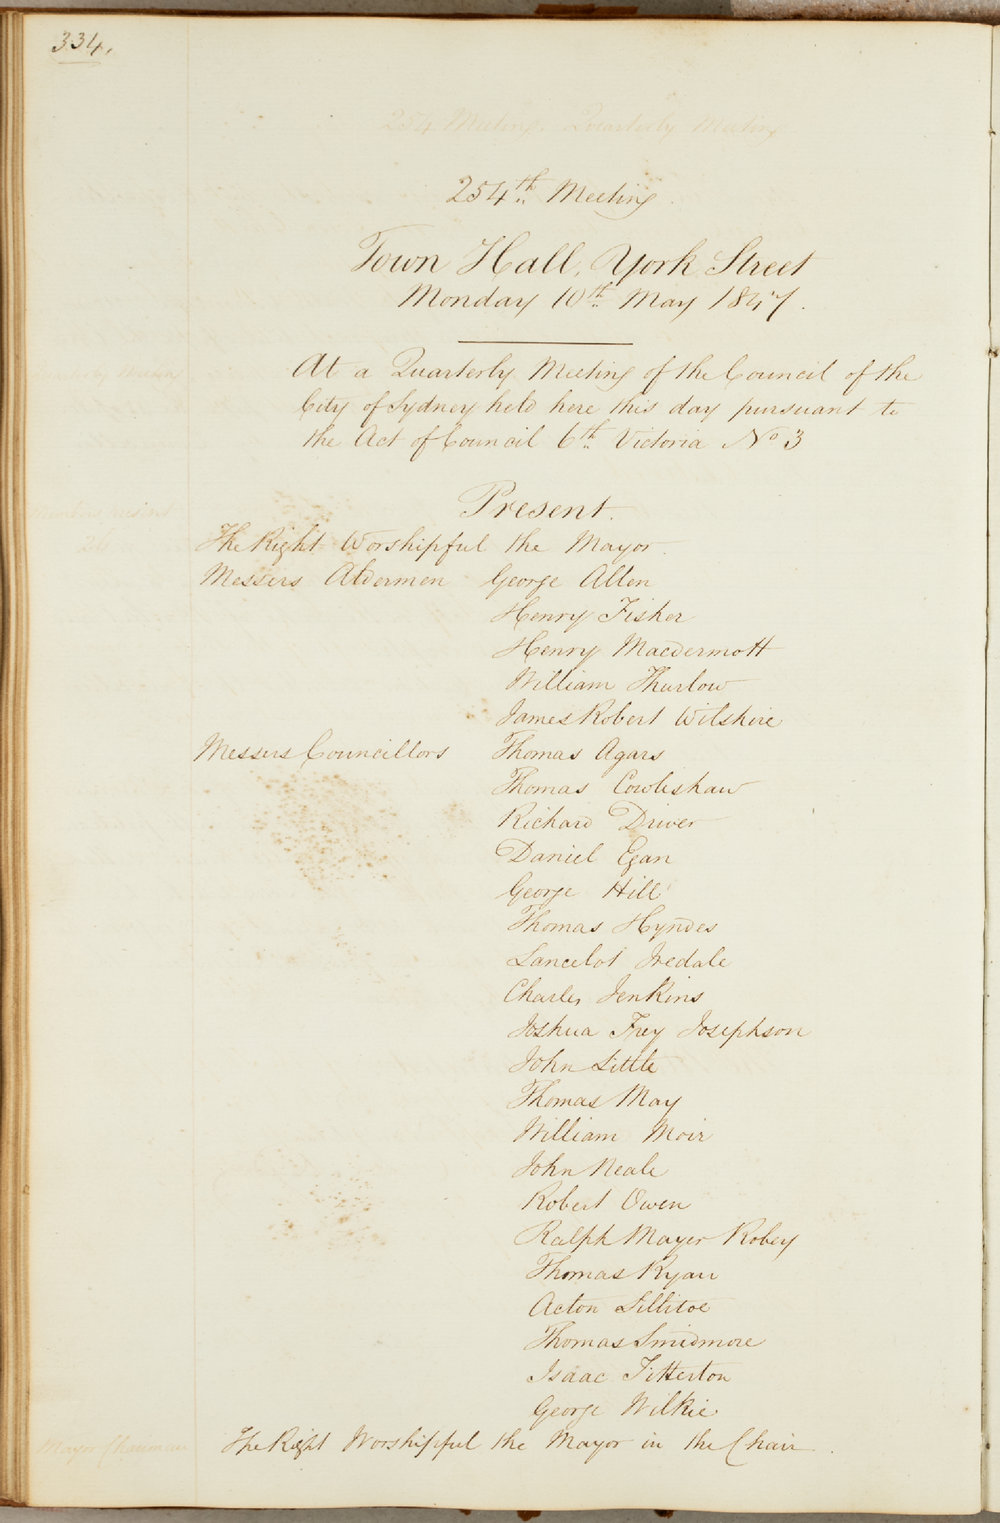 334.
254 Meeting. Quarterly Meeting
254th Meeting.
Town Hall, York Street
Monday 10th May 1847.
Quarterly Meeting
At a Quarterly Meeting of the Council of the
City of Sydney held here this day pursuant to
the Act of Council 6th Victoria No 3
Present.
Members present
26
The Right Worshipful the Mayor.
Messers Aldermen George Allen
Henry Fisher
Henry Macdermott
William Thurlow
James Robert Wilshire
Messers Councillors Thomas Agars
Thomas Cowlishaw
Richard Driver
Daniel Egan
George Hill
Thomas Hyndes
Lancelot Iredale
Charles Jenkins
Joshua Frey Josephson
John Little
Thomas May
William Moir
John Neale
Robert Owen
Ralph Mayer Robey
Thomas Ryan
Acton Sillitoe
Thomas Smidmore
Isaac Titterton
George Wilkie
Mayor Chairman
The Right Worshipful the Mayor in the Chair.